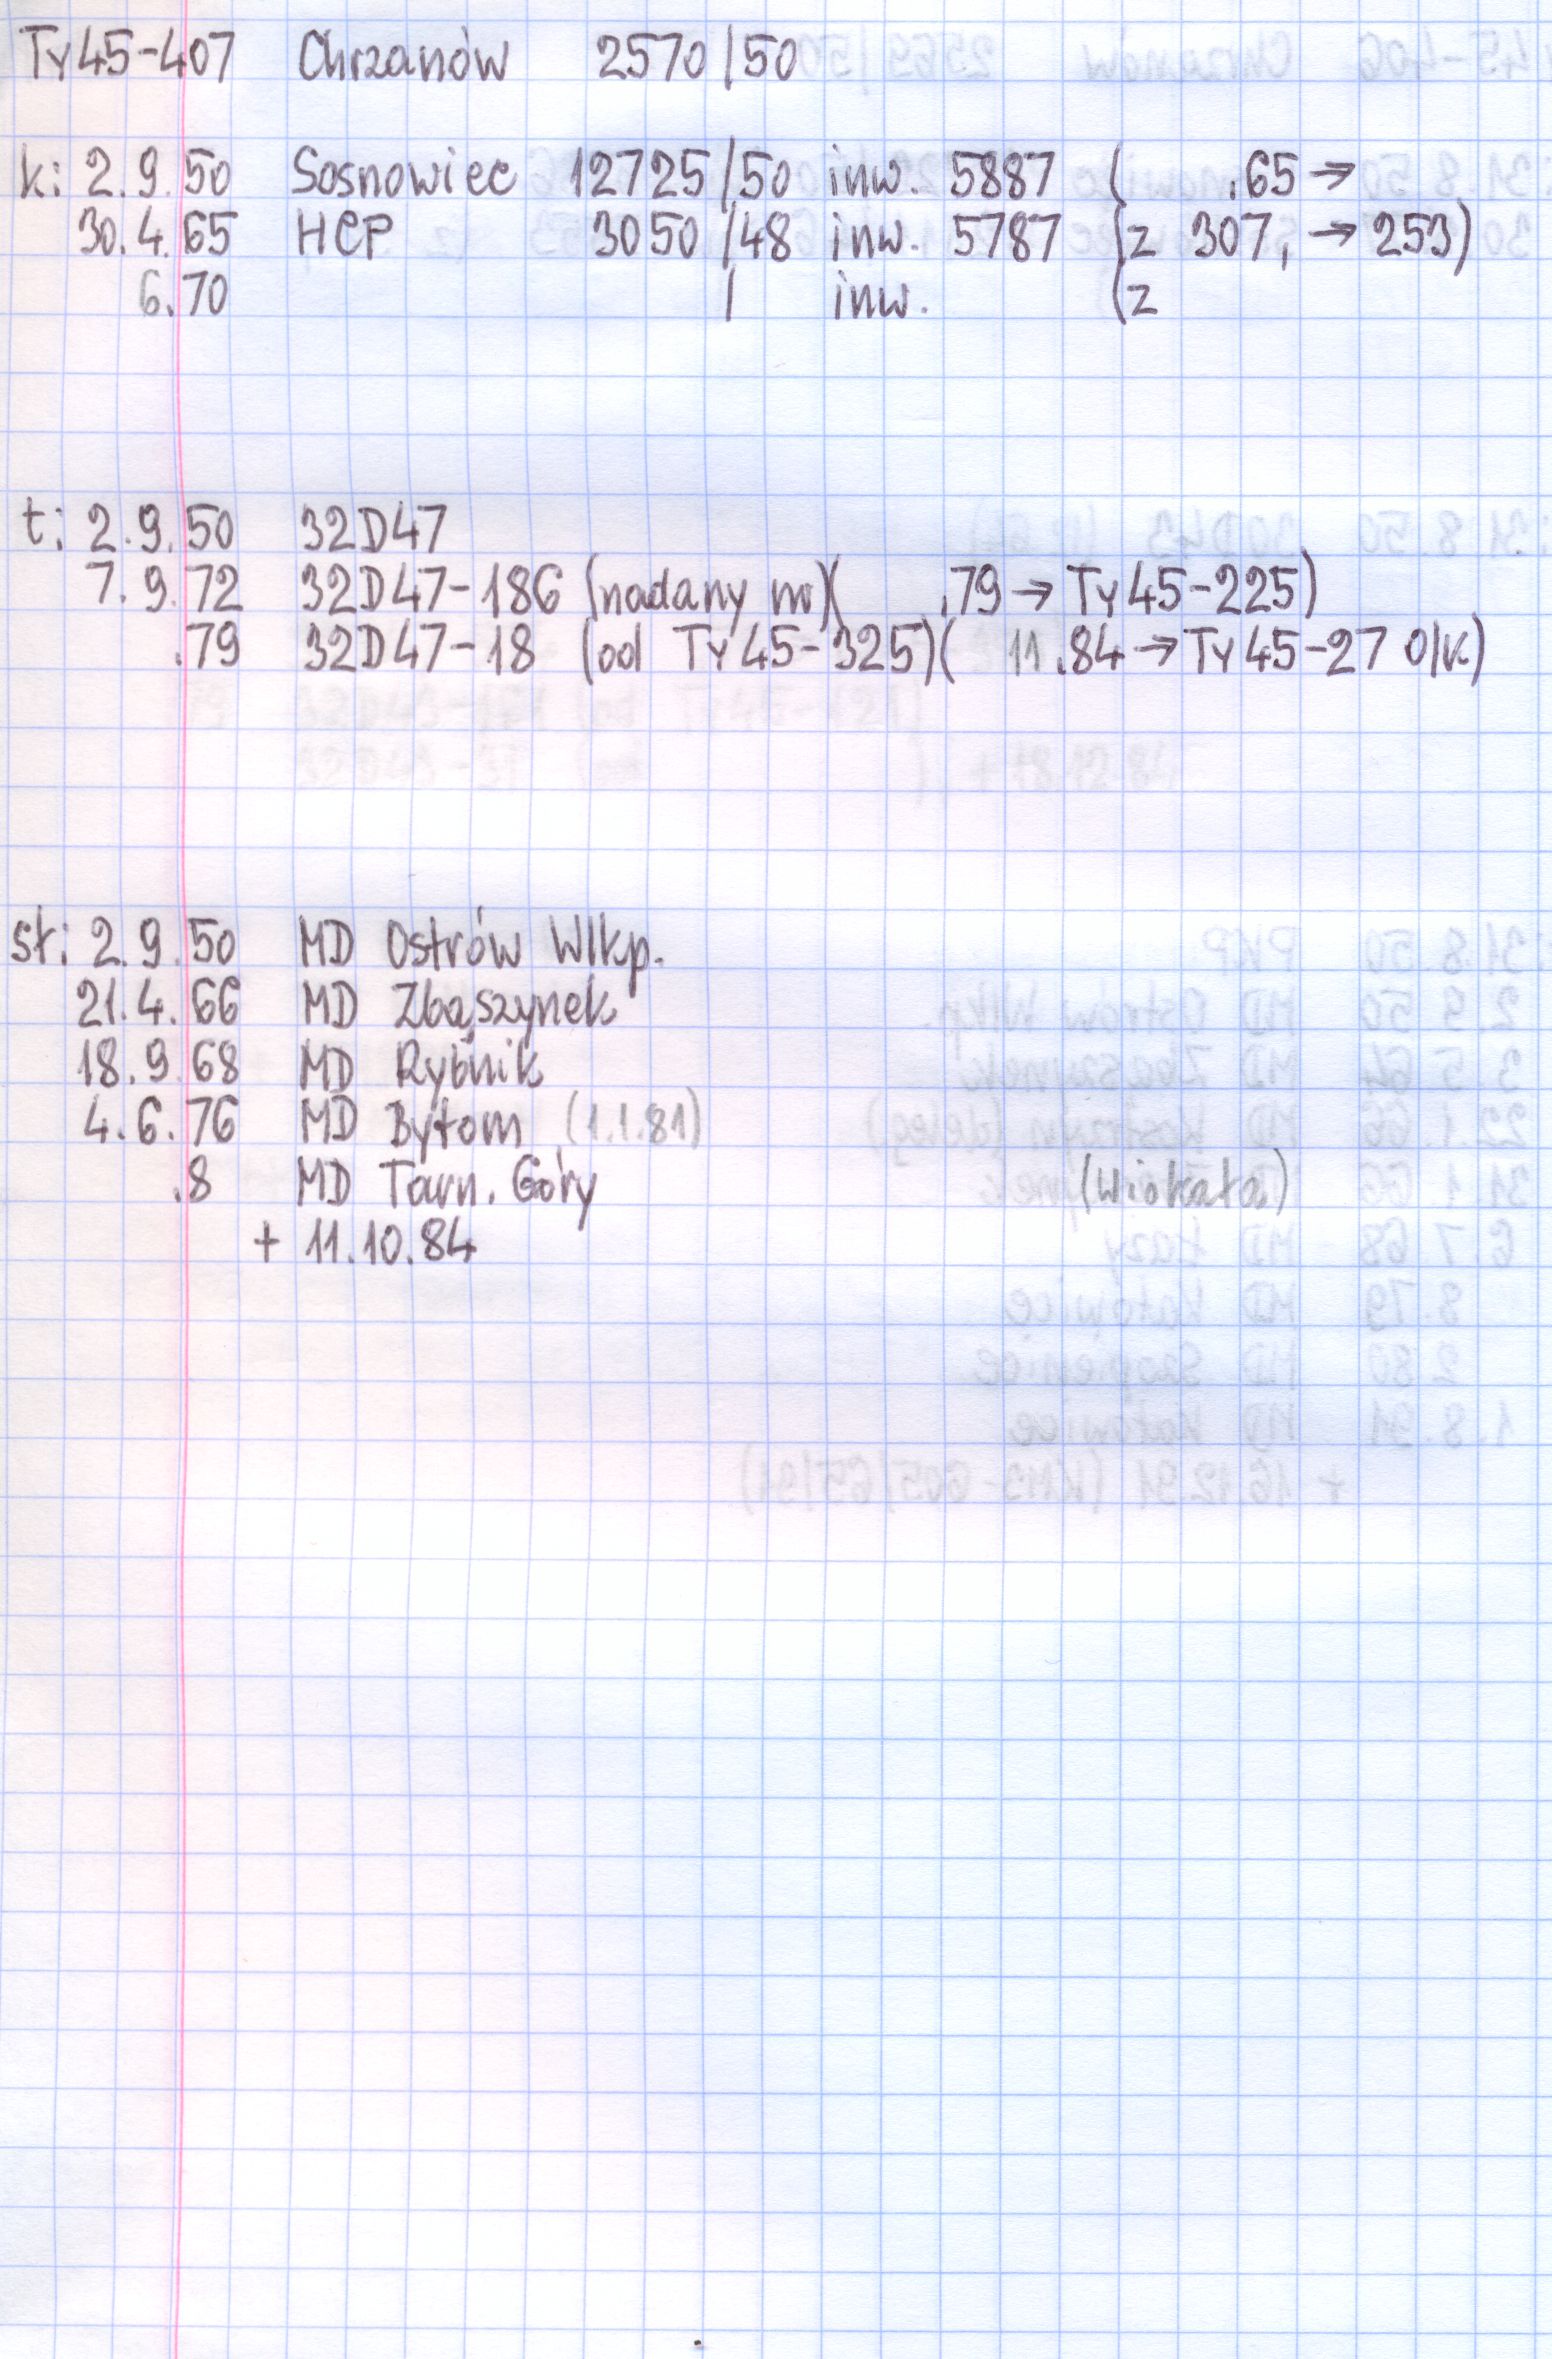 Ty45-407 Chrzanów 2570/50
k: 2.9.50 Sosnowiec 12725/50 inw. 5887 ( .65 →
30.4.65 HCP 3050/48 inw. 5787 (z 307, → 253)
6.70 / inw. (z
t: 2.9.50 32D47
7.9.72 32D47-186 (nadany nr)( .79 → Ty45-225)
.79 32D47-18 (od Ty45-325)( 11.84 → Ty45-27 O/K)
st: 2.9.50 MD Ostrów Wlkp.
21.4.66 MD Zbąszynek
18.9.68 MD Rybnik
4.6.76 MD Bytom (1.1.81)
.8 MD Tarn. Góry (Wiokata)
+ 11.10.84